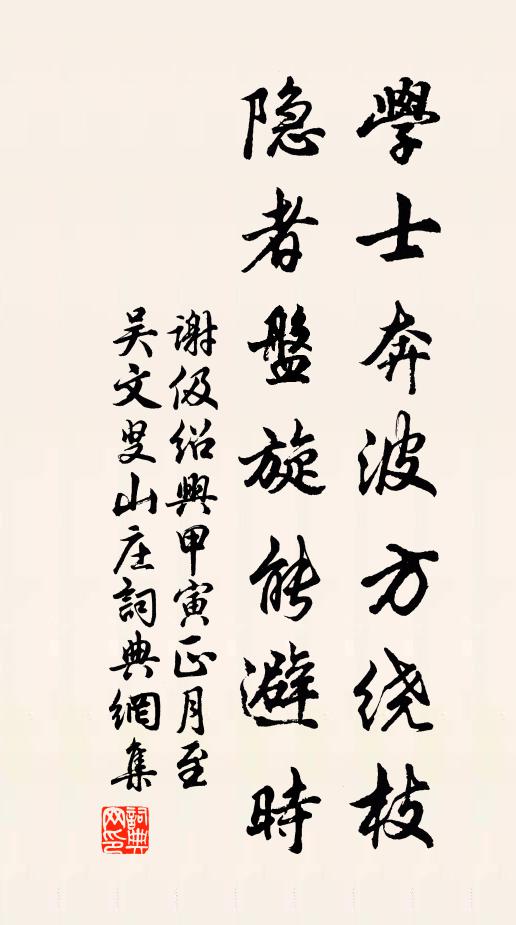 學士奔波方绕枝
隐者盤旋能避時
谢伋绍興甲寅正月至
吴文叟山庄詞典網集
詞典網印